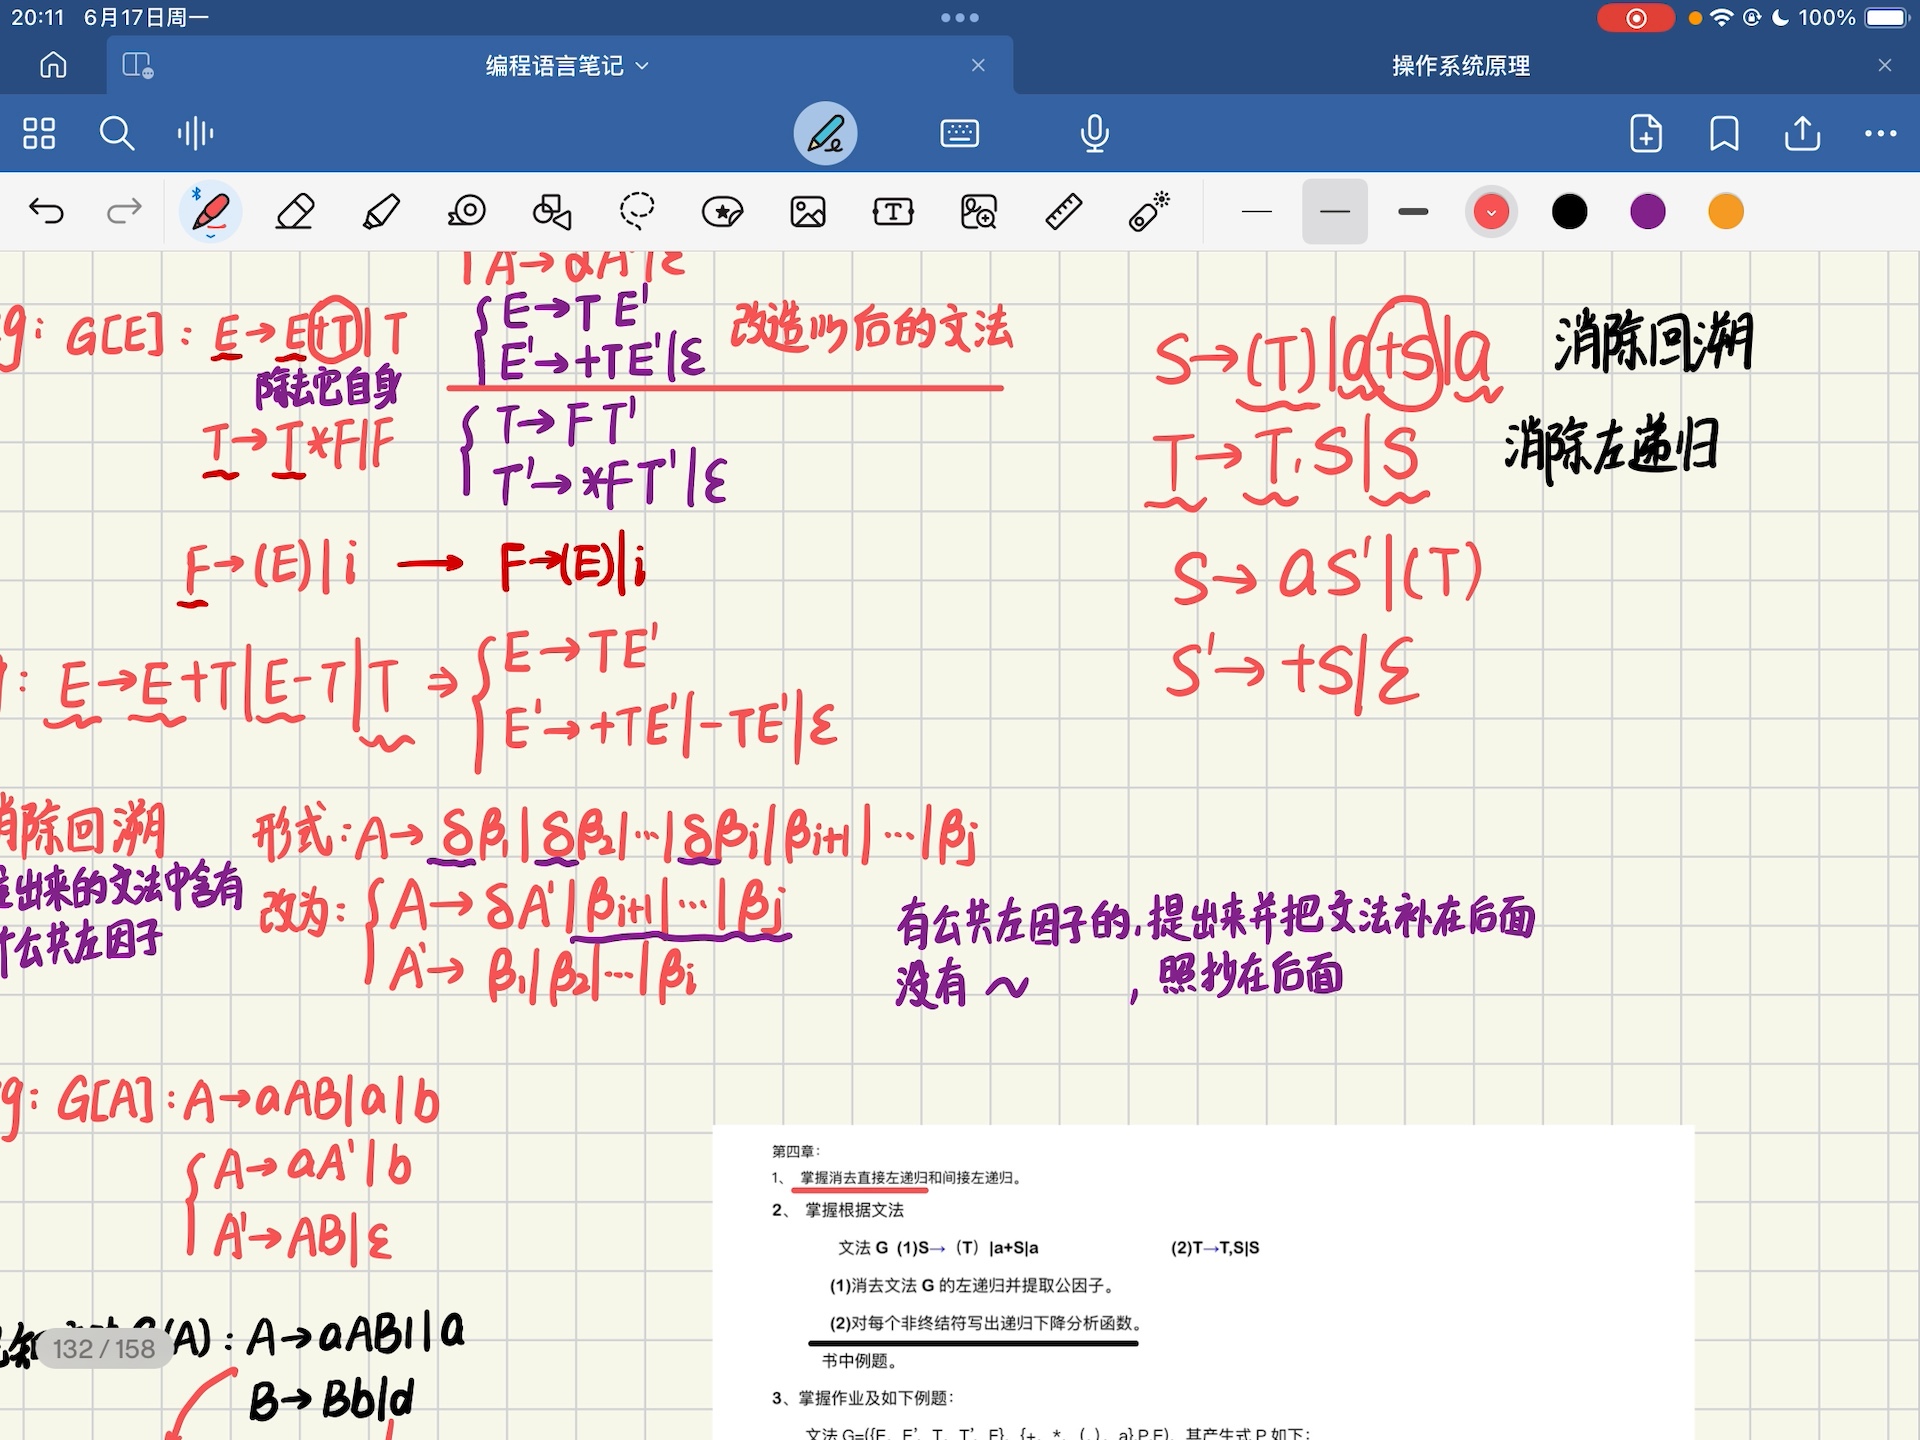 20:11 6月17日周一
100%
编程语言笔记
操作系统原理
A'→αA'|ε
eg: G[E]: E→E+T|T
除去它自身
T→T*F|F
F→(E)|i → F→(E)|i
E→TE'
E'→+TE'|ε
改造以后的文法
T→FT'
T'→*FT'|ε
S→(T)|a+S|a 消除回溯
T→T,S|S 消除左递归
S→aS'|(T)
S'→+S|ε
: E→E+T|E-T|T ⇒
E→TE'
E'→+TE'|-TE'|ε
消除回溯 形式:A→δβ₁|δβ₂|…|δβi|βi+1|…|βj
出来的文法中含有
公共左因子
改为:
A→δA'|βi+1|…|βj
A'→β₁|β₂|…|βi
有公共左因子的,提出来并把文法补在后面
没有 ~ ,照抄在后面
eg: G[A]:A→aAB|a|b
A→aA'|b
A'→AB|ε
(A): A→aABl|a
B→Bb|d
132 / 158
第四章:
1、 掌握消去直接左递归和间接左递归。
2、 掌握根据文法
文法 G (1)S→（T）|a+S|a (2)T→T,S|S
(1)消去文法 G 的左递归并提取公因子。
(2)对每个非终结符写出递归下降分析函数。
书中例题。
3、掌握作业及如下例题：
文法 G=({E，E'，T，T'，F}，{+，*，(，)，a},P,E)，其产生式 P 如下：